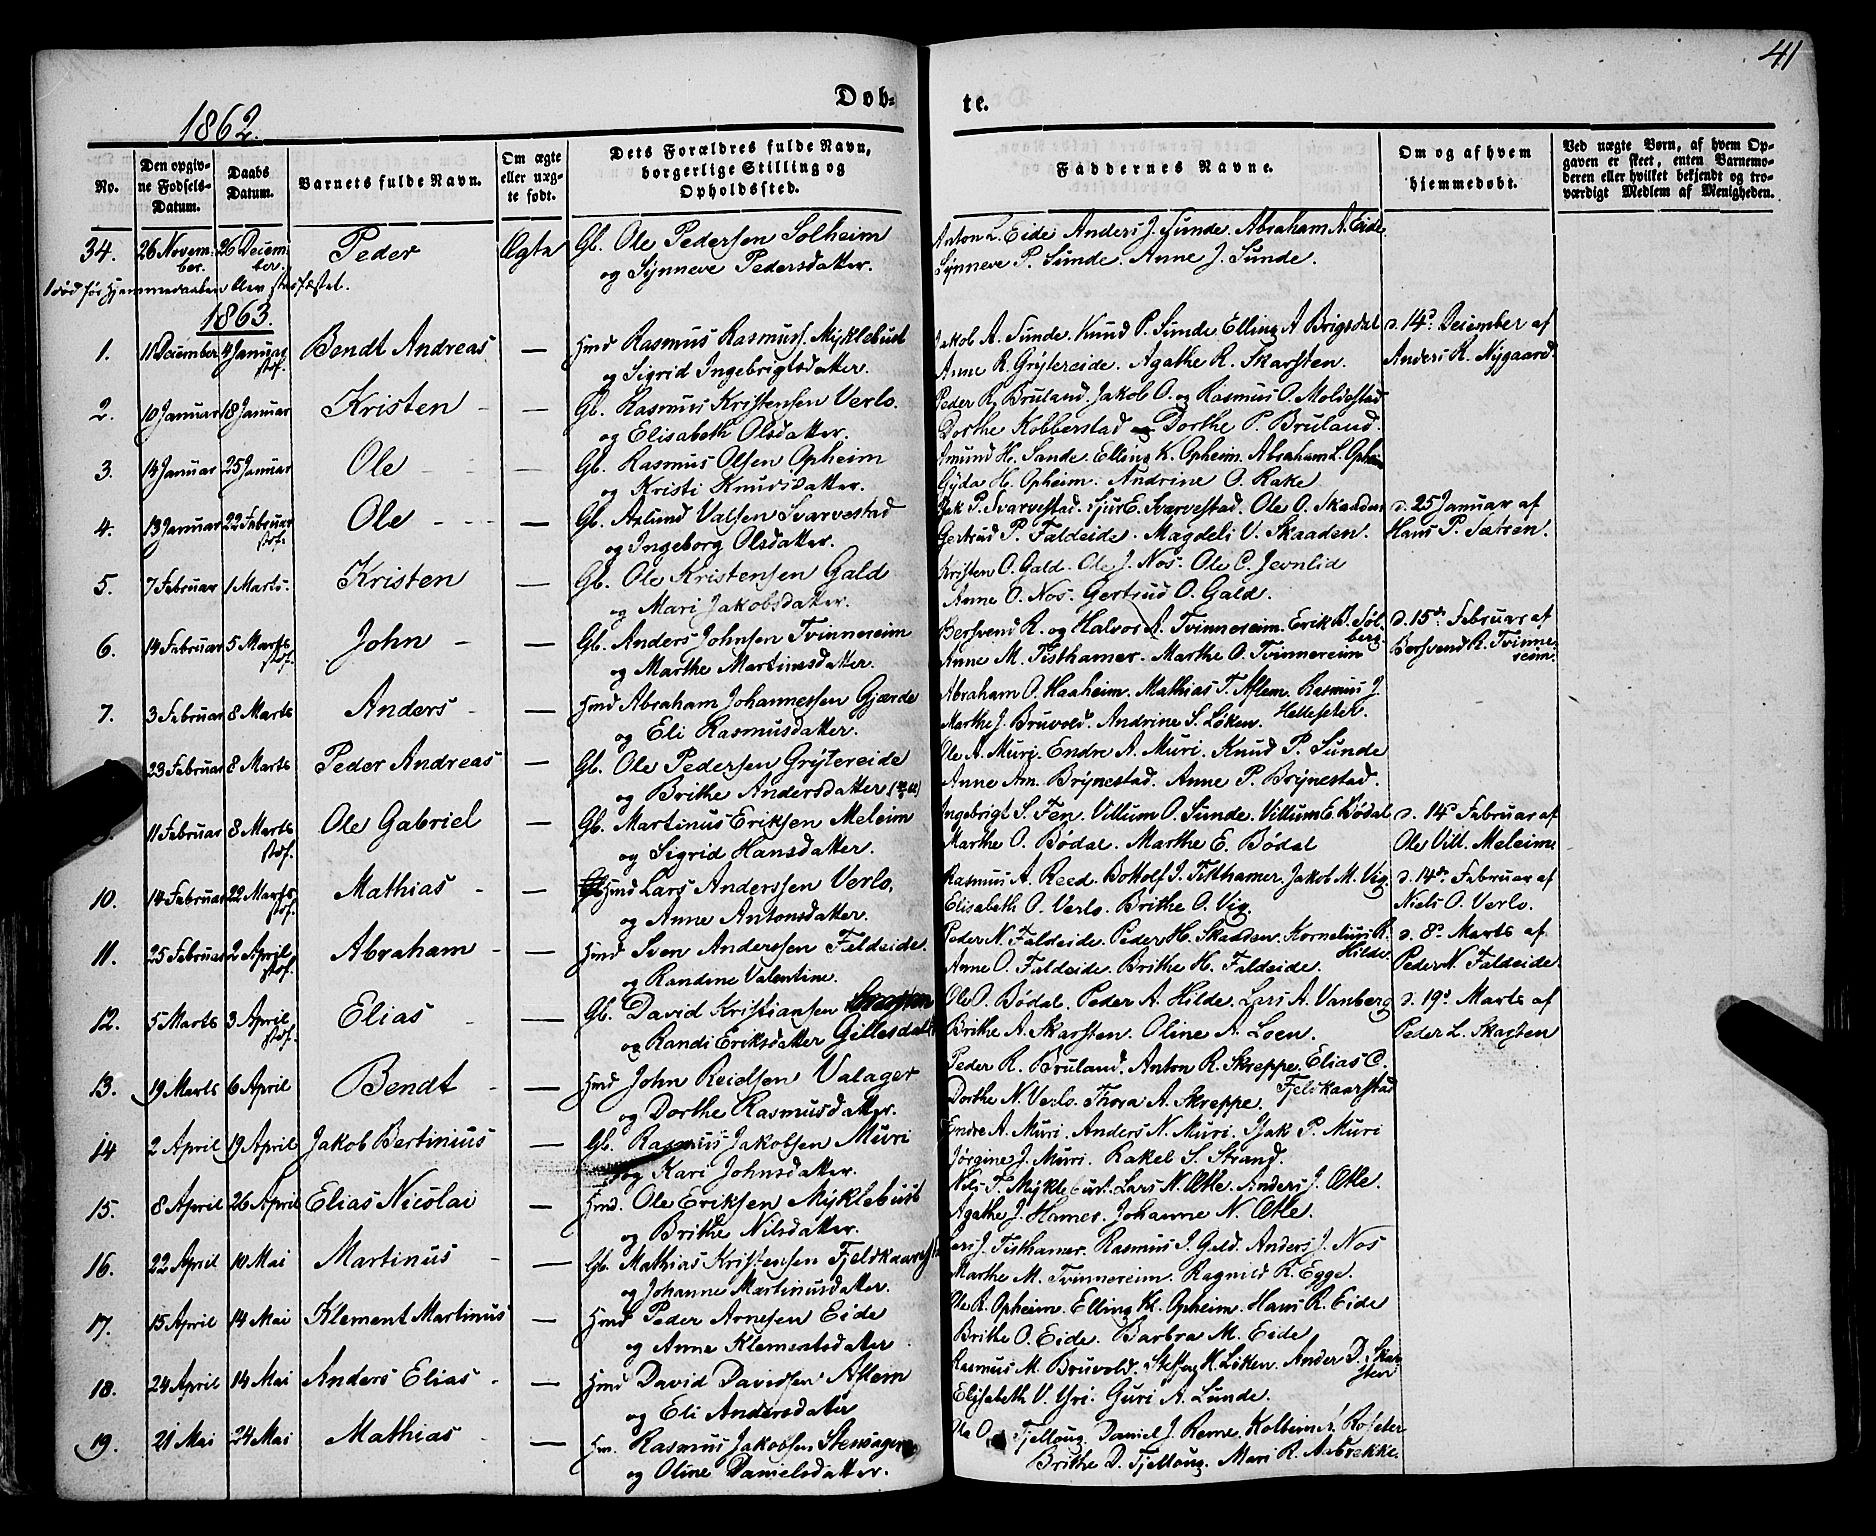 41
Døb-
te.
1862.
No.
Den opgivne Fødsels-Datum.
Daabs Datum.
Barnets fulde Navn.
Om ægte eller uægte født.
Dets Forældres fulde Navn, borgerlige Stilling og Opholdssted.
Faddernes Navne.
Om og af hvem hiemmedøbt.
Ved uægte Børn, af hvem Opgaven er skeet, enten Barnemoderen eller hvilket bekjendt og troværdigt Medlem af Menigheden.
34. 26 November. 26 December. Peder Ægte Gb. Ole Pedersen Solheim Anton L. Eide Anders J. Sunde. Abraham A. Eide.
og Synneve Pedersdatter. Synneve P. Sunde. Anne J. Sunde.
1 død før Hjemmedaaben blev stadfæstet.
1863.
1. 11 December 4 Januar stdf. Bendt Andreas — Hmd Rasmus Rasmuss. Myklebust Jakob A. Sunde. Knud P. Sunde Elling A Brigsdal d. 14d. December af
og Sigrid Ingebrigtsdatter. Anne R. Grytereide. Agathe R. Skarsten. Anders R. Nygaard.
2. 10 Januar 18 Januar Kristen — Gb. Rasmus Kristensen Verlo. Peder R. Bruland. Jakob O. og Rasmus O. Moldestad
og Elisabeth Olsdatter. Dorthe Kobberstad og Dorthe P. Bruland.
3. 14 Januar 25 Januar Ole — Gb. Rasmus Olsen Opheim Amund H. Sande. Elling K. Opheim. Abraham L. Opheim
og Kristi Knudsdatter. Gyda H. Opheim. Andrine O. Rake
4. 13 Januar 22 Februar stdf. Ole — Gb. Aslund Valsen Svarvestad Isak P. Svarvestad. Sjur E. Svarvestad. Ole O. Skaaden d. 25 Januar af
og Ingeborg Olsdatter. Gertrud P. Faldeide. Magdeli V. Skaaden. Hans P. Sætren.
5. 7 Februar 1 Marts. Kristen — Gb. Ole Kristensen Gald Kristen O. Gald. Ole J. Nos. Ole C. Jevnlid
og Mari Jakobsdatter. Anne O. Nos. Gertrud O. Gald.
6. 14 Februar 5 Marts stdf. John — Gb. Anders Johnsen Tvinnereim Bersvend R. og Halvor A. Tvinnereim. Erik D. Sølberg. d. 15de Februar af
og Marthe Martinusdatter. Anne M. Tisthamer. Marthe O. Tvinnereim Bersvend R. Tvinnereim.
7. 3 Februar 8 Marts Anders — Hmd Abraham Johannessen Gjærde Abraham O. Haaheim. Mathias T. Aflem. Rasmus J. Hellesetter.
og Eli Rasmusdatter. Marthe J. Bruvold. Andrine S. Løken.
23 Februar 8 Marts Peder Andreas — Gb. Ole Pedersen Grytereide Ole A. Muri. Endre A. Muri. Knud P. Sunde
og Brithe Andersdatter Anne Am. Brynestad. Anne P. Brynestad.
11 Februar 8 Marts stdf. Ole Gabriel — Gb. Martinus Eriksen Meleim Ingebrigt S. Fen. Villum O. Sunde. Villum E. Bødal d. 14d Februar af
og Sigrid Hansdatter. Marthe O. Bødal. Marthe E. Bødal Ole Vill. Meleim
10. 14 Februar 22 Marts stdf. Mathias — Hmd Lars Anderssen Verlo. Rasmus A. Reed. Botholf J. Tisthamer. Jakob M. Vig. d. 14de Februar af
og Anne Antonsdatter. Elisabeth O. Verlo. Brithe O. Vig. Niels O. Verlo.
11. 25 Februar 2 April stdf. Abraham — Hmd Sven Anderssen Faldeide. Peder N. Faldeide. Peder H. Skaaden. Kornelius R. Hilde. d. 8d. Marts af
og Randine Valentine. Anne O. Faldeide. Brithe H. Faldeide. Peder N. Faldeide.
12. 5 Marts 3 April stdf. Elias — Gb. David Kristiansen Ole O. Bødal. Peder A. Hilde. Lars A. Vanberg d. 19d. Marts af
og Randi Eriksdatter Gillesdal Brithe A. Skarsten. Oline A. Loen. Peder L. Skarsten
13. 19 Marts 6 April Bendt — Hmd John Reidsen Valager Peder R. Bruland. Anton R. Skreppe. Elias C. Fjelskaarstad
og Dorthe Rasmusdatter. Dorthe N. Verlo. Thora A. Skreppe.
14 2 April 19 April Jakob Bertinius — Gb. Rasmus Jakobsen Muri Endre A. Muri. Anders N. Muri. Isak P. Muri
og Kari Johnsdatter. Jørgine J. Muri. Rakel S. Strand.
15. 8 April 26 April Elias Nicolai — Hmd. Ole Eriksen Myklebust Nils T. Myklebust. Lars N. Øtle. Anders J. Øtle.
og Brithe Nilsdatter. Agathe J. Hamer. Johanne N. Øtle.
16. 22 April 10 Mai Martinus — Gb. Mathias Kristensen Fjeldkaarsta Lars J. Tisthamer. Rasmus J. Gald. Anders J. Nos
og Johanne Martinusdatter. Marthe M. Tvinnereim. Ragnild R. Egge.
17. 15 April 14 Mai Klement Martinus — Hmd Peder Arnesen Eide Ole R. Opheim. Elling Kl. Opheim. Hans R. Eide
og Anne Klementsdatter Brithe O. Eide. Barbra M. Eide
18. 24 April 14 Mai Anders Elias — Hmd David Davidsen Aflem Rasmus M. Bruvold. Steffen H. Løken. Anders D. Skarsten
og Eli Andersdatter Elisabeth V. Yri. Guri A. Sunde.
19. 21 Mai 24 Mai Mathias — Hm. Rasmus Jakobsen Stensager Ole O. Fjelloug. Daniel J. Reme. Kolbein Roseter
og Oline Danielsdatter. Brithe D. Fjelloug. Mari R. Aabrekke.